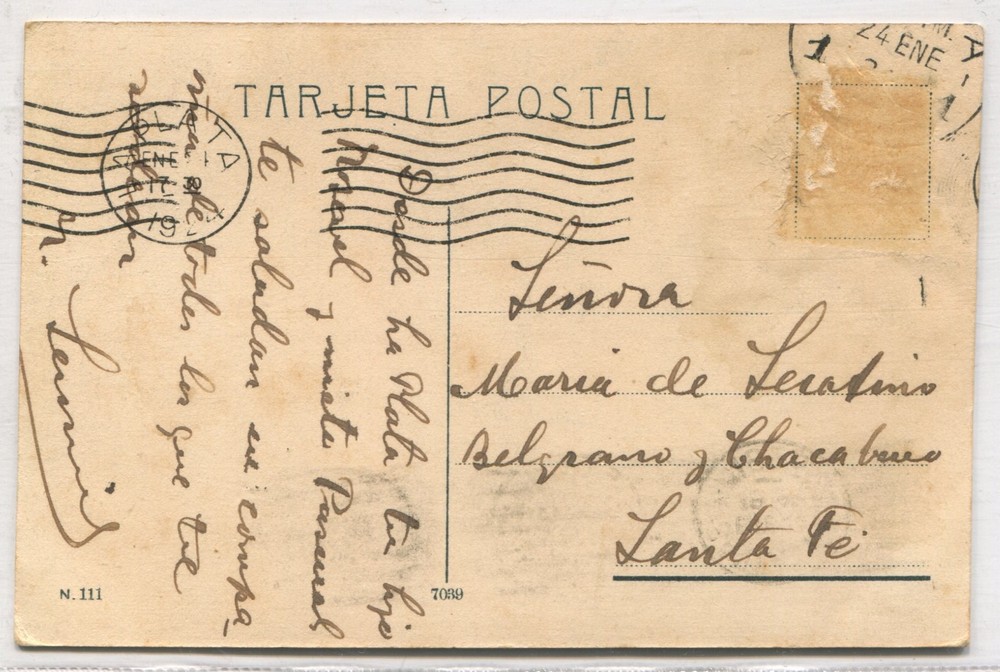 TARJETA POSTAL
24 ENE
LA PLATA
ENE
17
19
Señora
Maria de Serafino
Belgrano y Chacabuco
Santa Fé
Desde La Plata tu hijo
y nieto Pascual
te saludan en compa-
de todos los que te
N. 111
7039